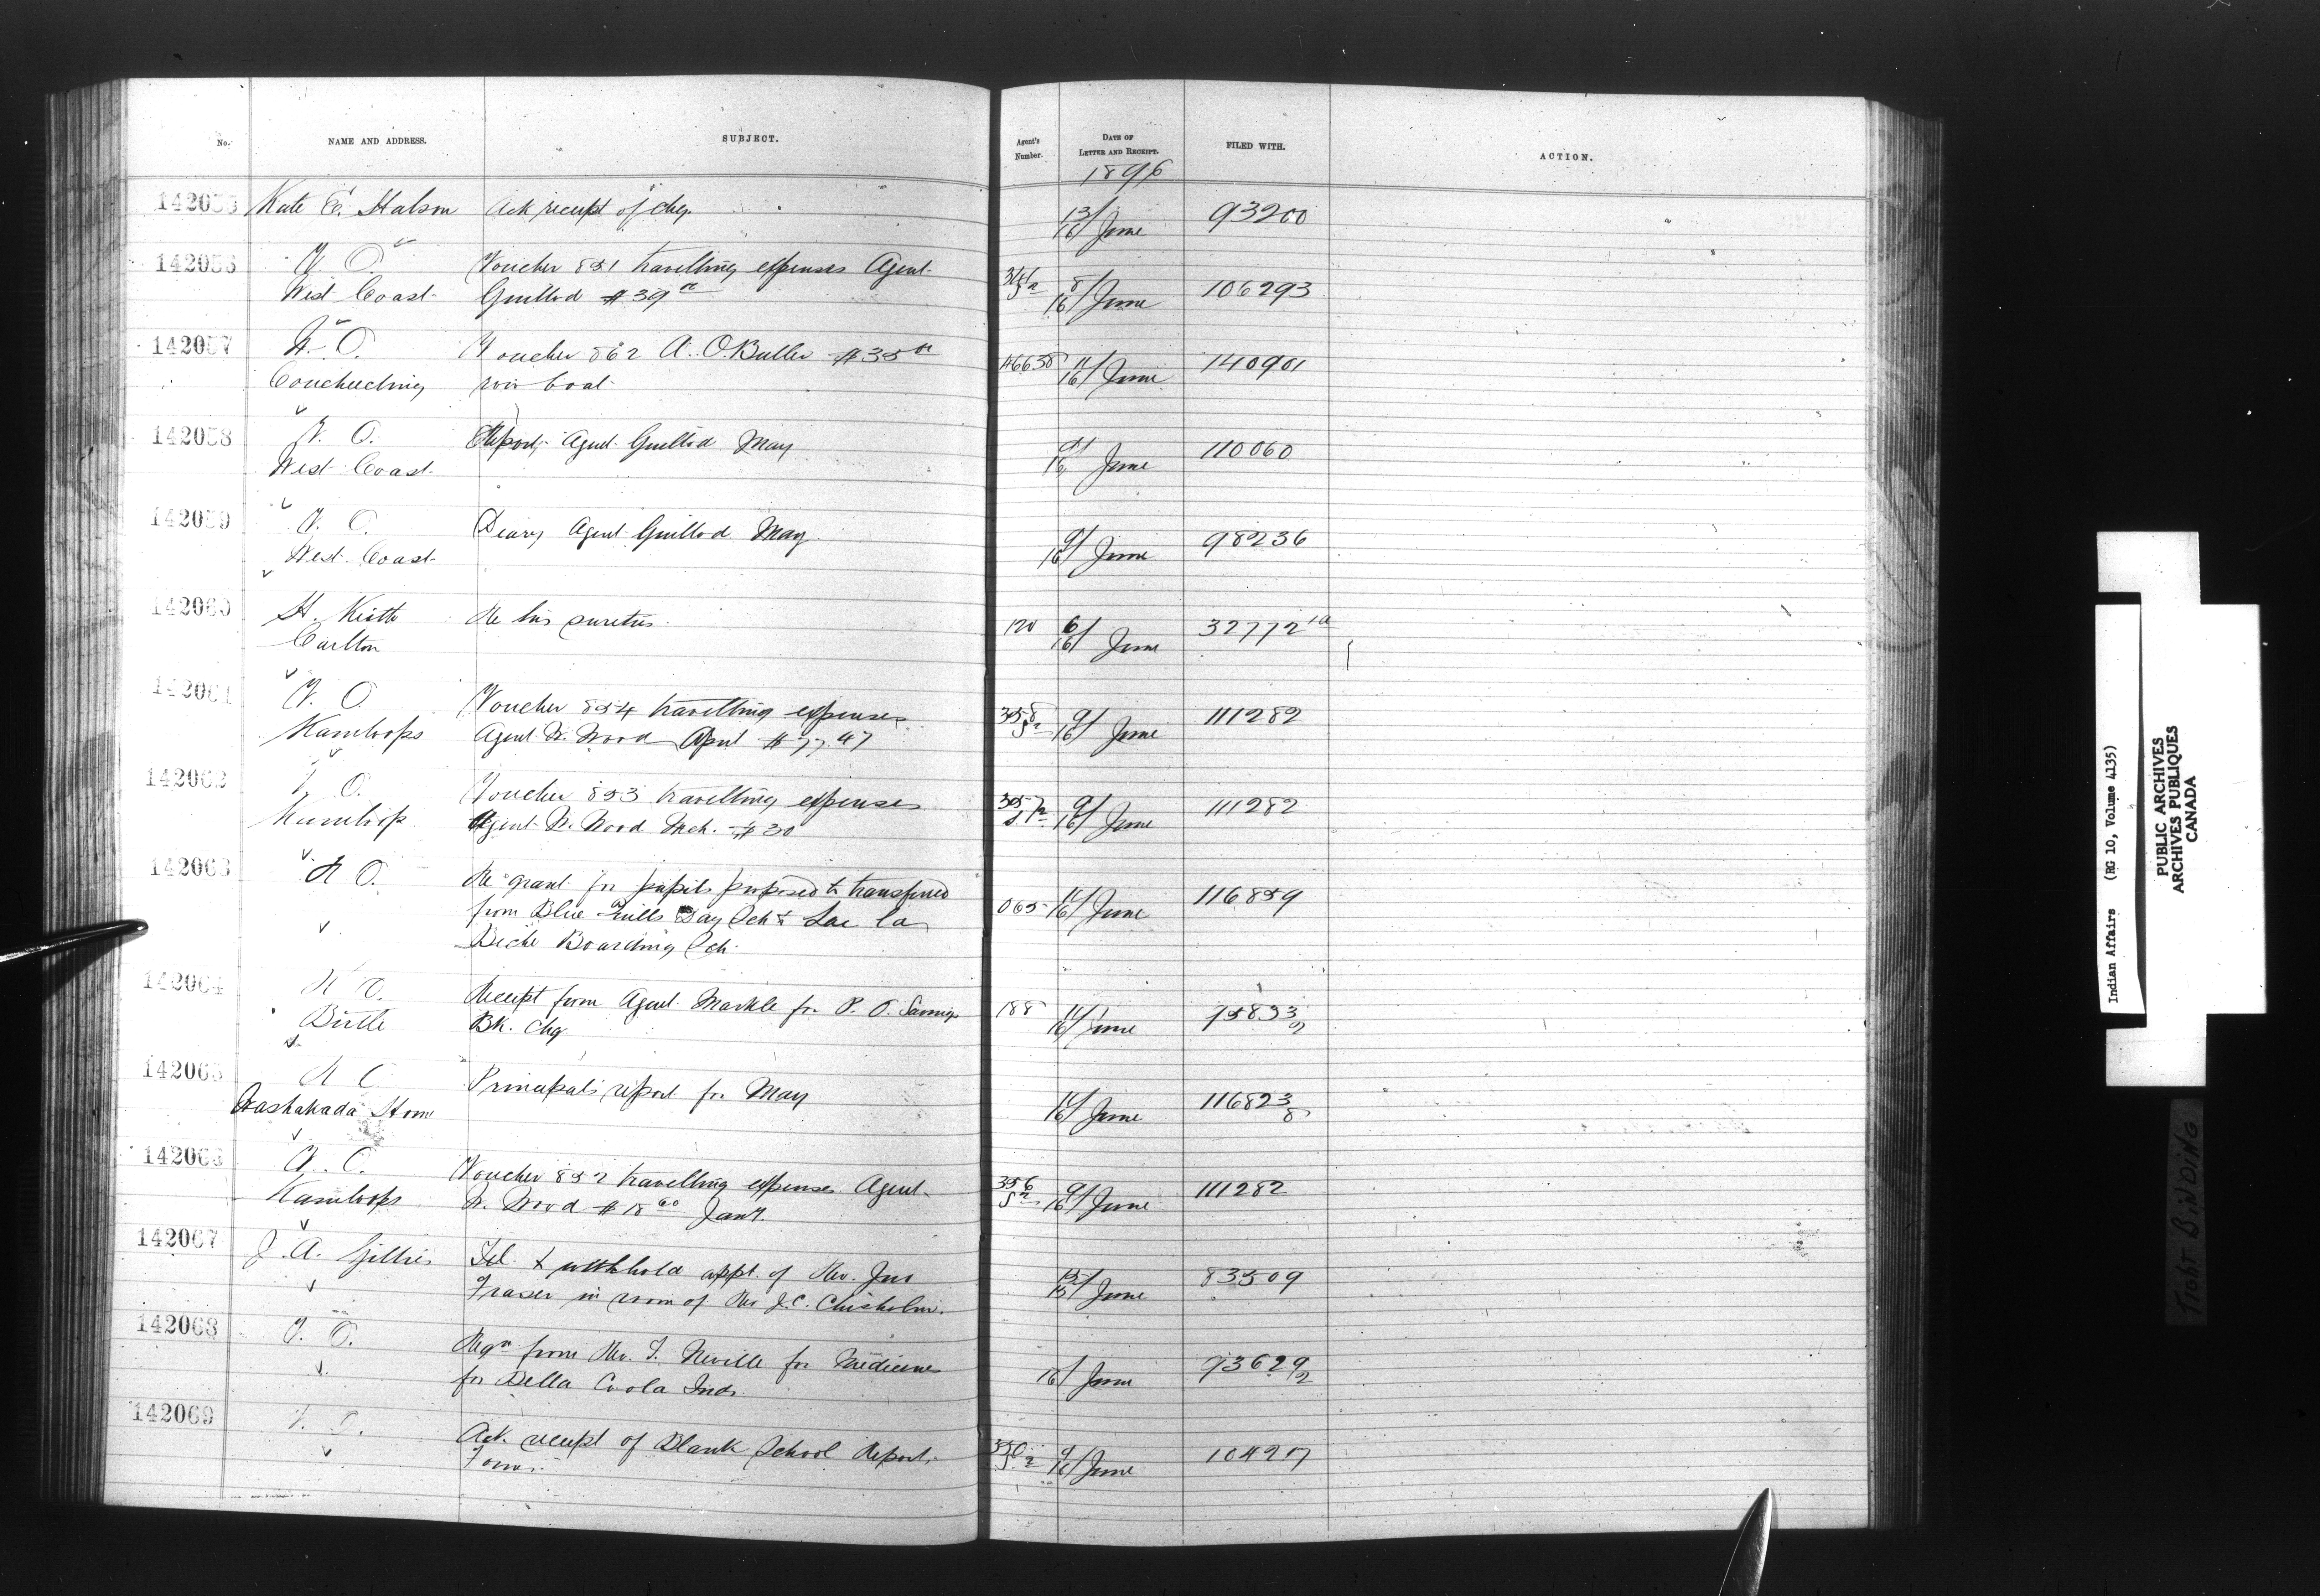 No. NAME AND ADDRESS. SUBJECT. Agent's Number. DATE OF LETTER AND RECEIPT. FILED WITH. ACTION.
1896
142055 Kate E. Halson Ack receipt of chq. 13/16 June 93200
142056 V. O. Voucher 851 travelling expenses Agent 8/16 June 106293
West Coast Guillod $39
142057 Voucher 862 A. O. Butler $35 11/16 June 140901
Couchiching row boat
142058 V. O. Report, Agent Guillod May 9/16 June 110060
West Coast
142059 V. O. Diary Agent Guillod May 9/16 June 98236
West Coast
142060 H. Keith Re his sureties 120 6/16 June 32772 1a
Carlton
142061 V. O. Voucher 854 travelling expenses 358 9/16 June 111282
Kamloops Agent W. Wood April $77.47
142062 V. O. Voucher 853 travelling expenses 357 9/16 June 111282
Kamloops Agent W. Wood Mch. $30
142063 R O. Re grant for pupils proposed to transferred
from Blue Quills Day Sch & Lac la 065 11/16 June 116859
Biche Boarding Sch.
142064 R O. Receipt from Agent Markle for P. O. Savings 188 11/16 June
Birtle Bk. chq
142065 R O Principal's report for May 11/16 June 116823 8
Washakada Home
142066 V. O. Voucher 852 travelling expenses Agent 356 9/16 June 111282
Kamloops W. Wood $18 60 Jany.
142067 J. A. Gillies Tel. to withhold appt. of Rev. Jno 15/15 June 83509
Fraser in room of Rev J. C. Chisholm.
142068 V. O. Reqn from Rev. T. Neville for medicines 16/ June 93629/2
for Bella Coola Inds.
142069 V. O. Ack. receipt of Blank School Report 350 9/16 June
Forms.
Indian Affairs (RG 10, Volume 4135)
PUBLIC ARCHIVES
ARCHIVES PUBLIQUES
CANADA
TIGHT BINDING